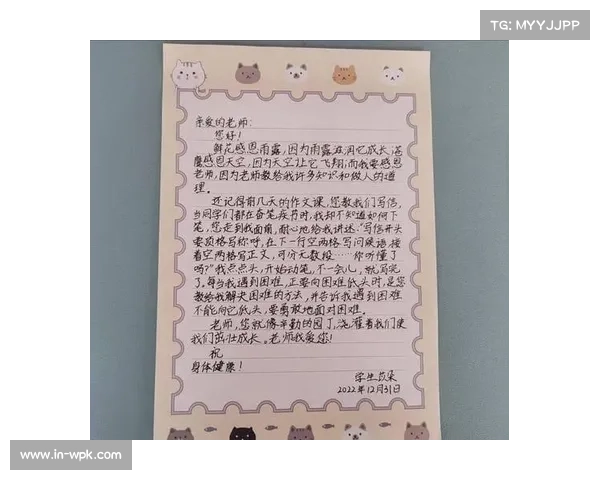 TG: MYYJJPP
亲爱的老师：
您好！
鲜花感恩雨露，因为雨露滋润它成长；苍
鹰感恩天空，因为天空让它飞翔；而我要感恩
老师，因为老师教给我许多知识和做人的道
理。
还记得前几天的作文课，您教我们写信，
当同学们都在奋笔疾书时，我却不知道如何下
笔，您走到我面前，耐心地给我讲述：“写信开头
要顶格写称呼，在下一行空两格写问候语，接
着空两格写正文，可分无数段……你听懂了
吗？”我点点头，开始动笔，不一会儿，就写完
了。每当我遇到困难，正要向困难低头时，是您
教给我解决困难的方法，并告诉我遇到困难
不能向它低头，要勇敢地面对困难。
老师，您就像辛勤的园丁，浇灌着我们，使
我们茁壮成长。老师我爱您！
祝
身体健康！
学生
2022年12月31日
www.in-wpk.com